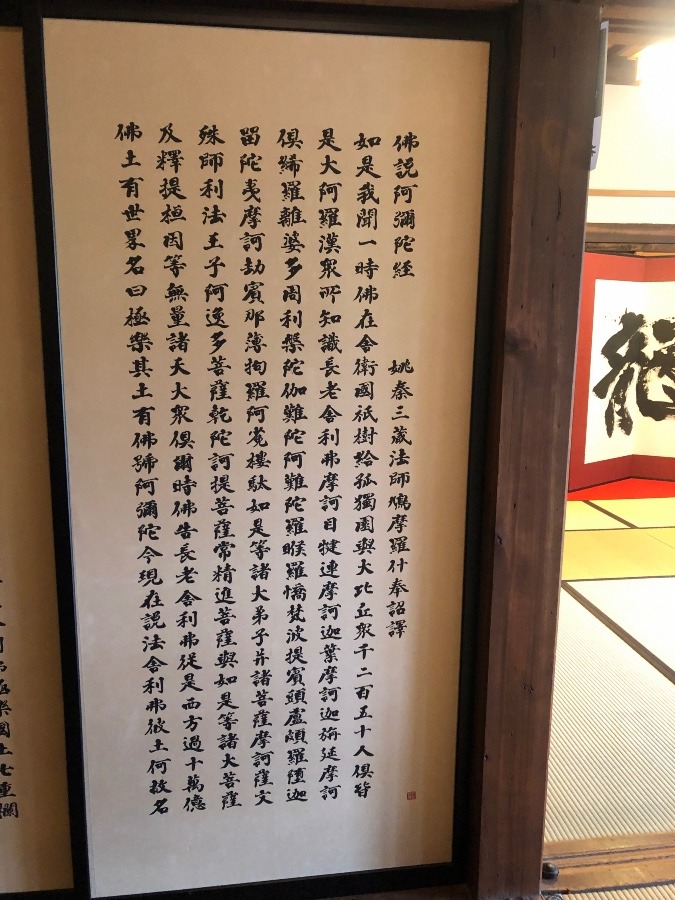 佛説阿彌陀経
姚秦三蔵法師鳩摩羅什奉詔譯
如是我聞一時佛在舎衛國祇樹給孤獨園與大比丘衆千二百五十人倶皆
是大阿羅漢衆所知識長老舎利弗摩訶目犍連摩訶迦葉摩訶迦旃延摩訶
倶絺羅離婆多周利槃陀伽難陀阿難陀羅睺羅憍梵波提賓頭盧頗羅堕迦
留陀夷摩訶劫賓那薄拘羅阿㝹樓駄如是等諸大弟子并諸菩薩摩訶薩文
殊師利法王子阿逸多菩薩乾陀訶提菩薩常精進菩薩與如是等諸大菩薩
及釋提桓因等無量諸天大衆倶爾時佛告長老舎利弗従是西方過十萬億
佛土有世界名曰極樂其土有佛號阿彌陀今現在説法舎利弗彼土何故名
極樂國土七重欄
龍